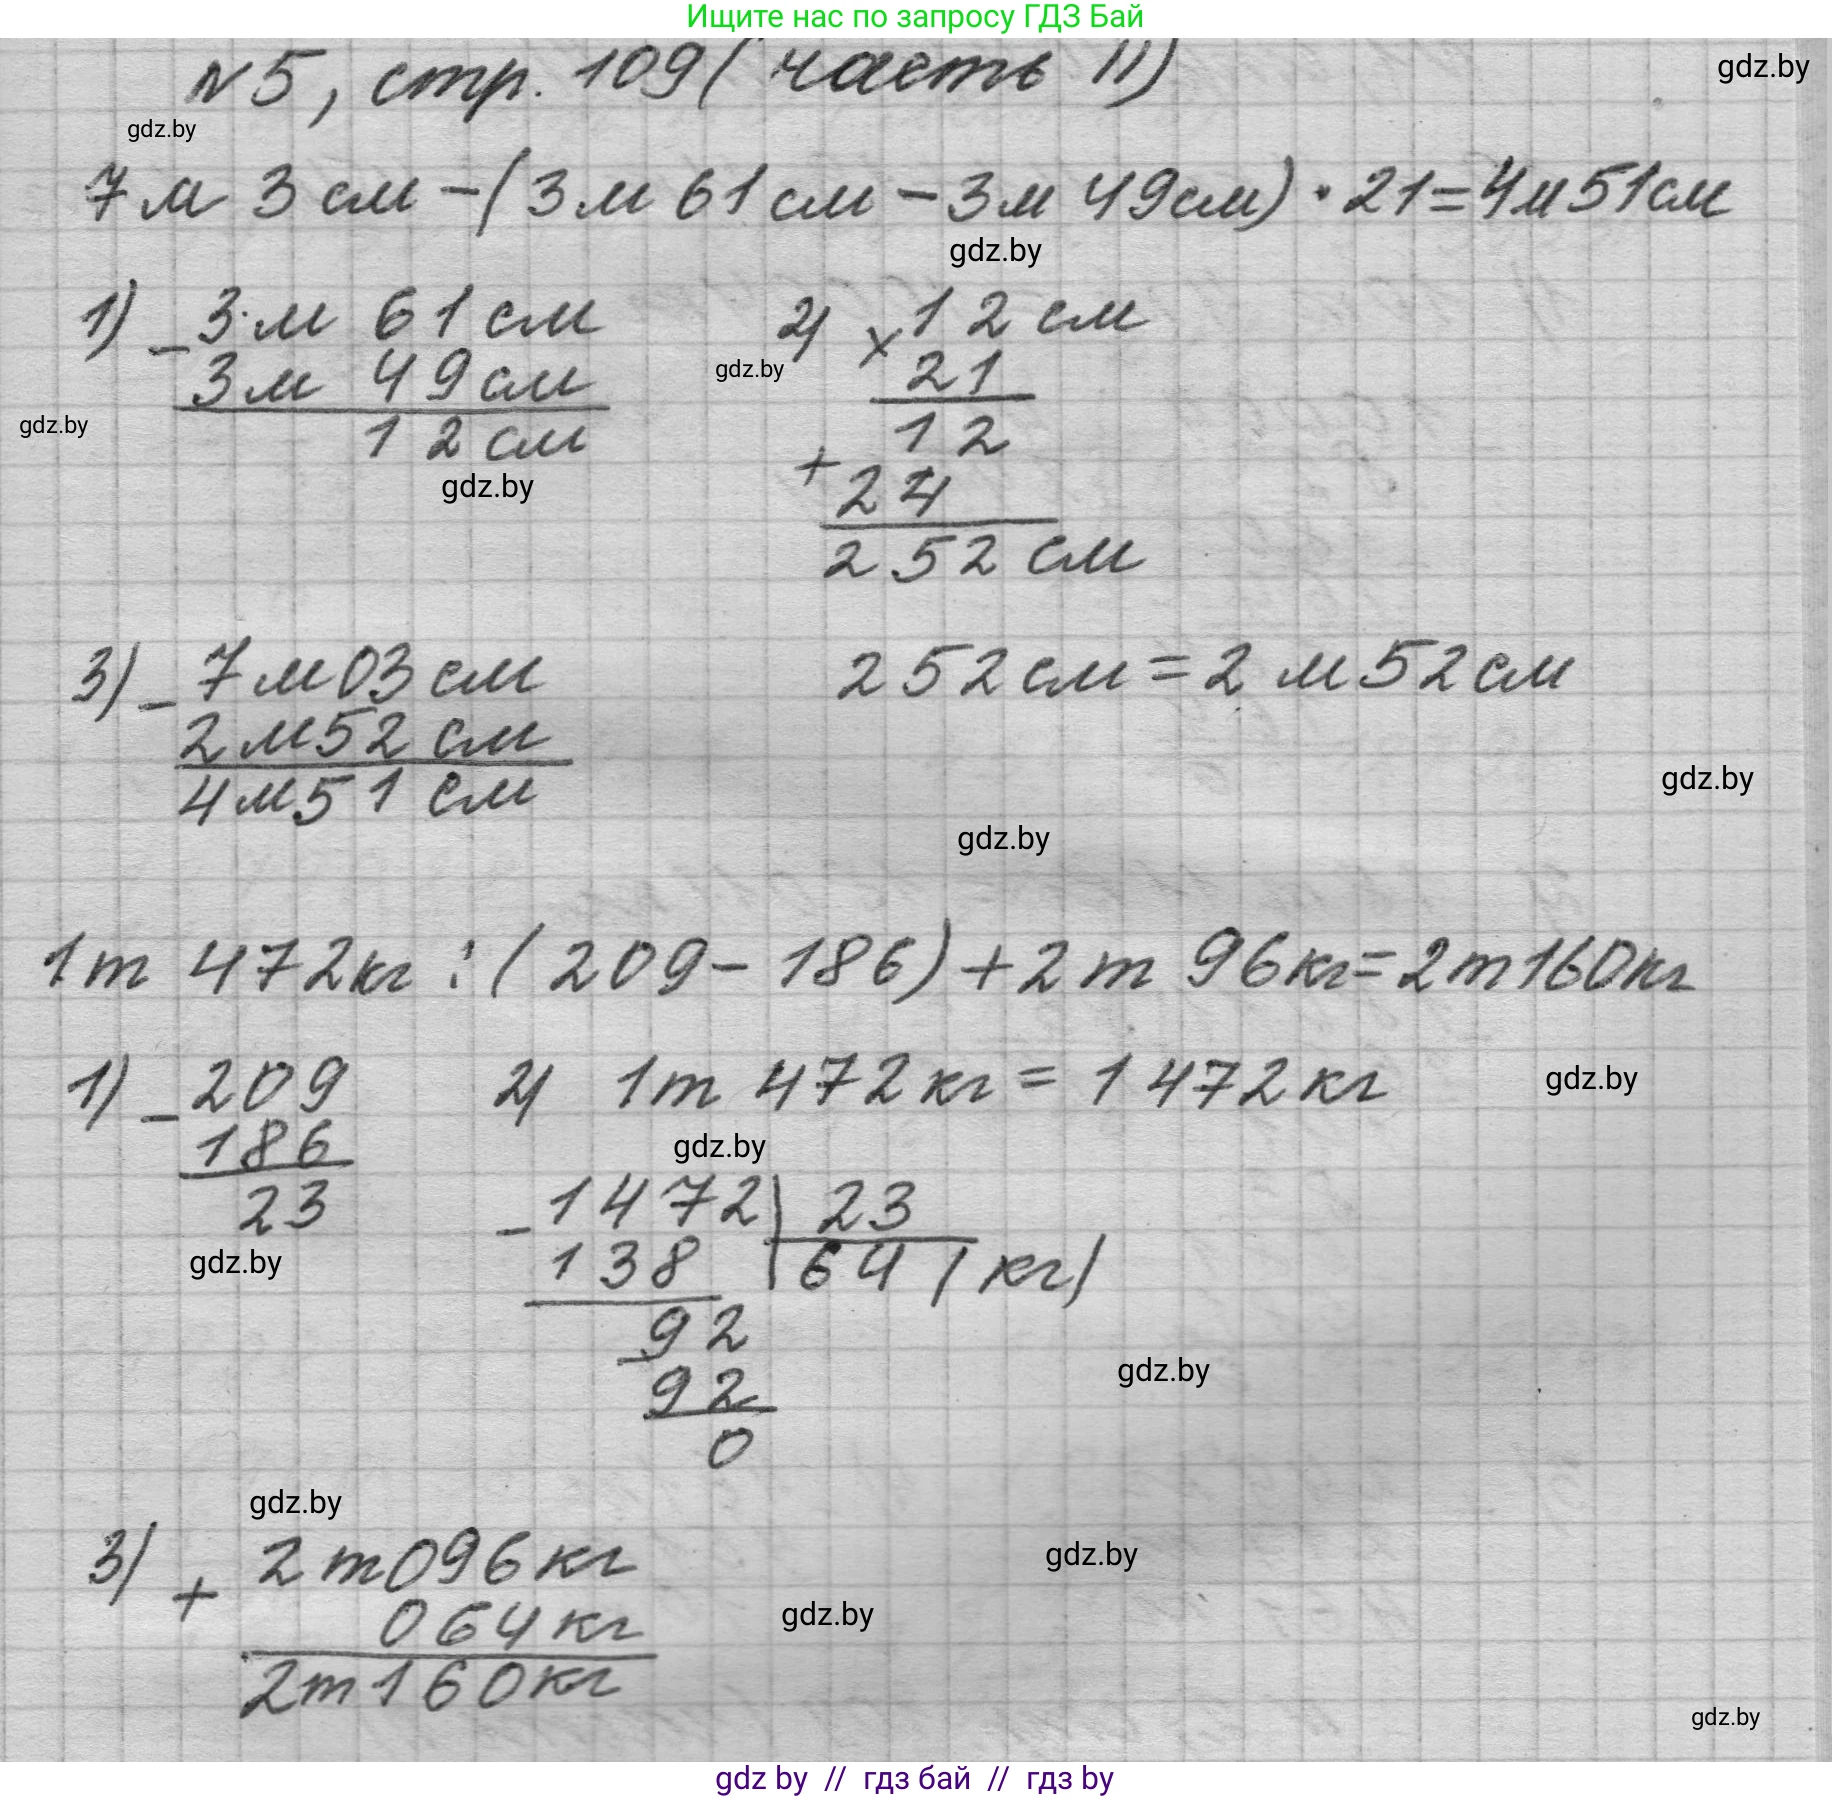 Ищите нас по запросу ГДЗ Бай
N5, стр. 109 (часть II)
gdz.by
gdz.by
7м 3см - (3м 61см - 3м 49см) · 21 = 4м 51см
gdz.by
1) - 3м 61см 2) × 12см
3м 49см 21
gdz.by
gdz.by
12см 12
gdz.by
+ 24
252см
3) - 7м 03см 252см = 2м 52см
2м 52см
4м 51см
gdz.by
gdz.by
1т 472кг : (209 - 186) + 2т 96кг = 2т 160кг
1) - 209 2) 1т 472кг = 1472кг
gdz.by
186
gdz.by
23 - 1472 | 23
gdz.by
138 64 (кг)
92
- 92
gdz.by
0
gdz.by
3) + 2т 096кг
gdz.by
064кг
gdz.by
2т 160кг
gdz.by
gdz by // гдз бай // гдз by